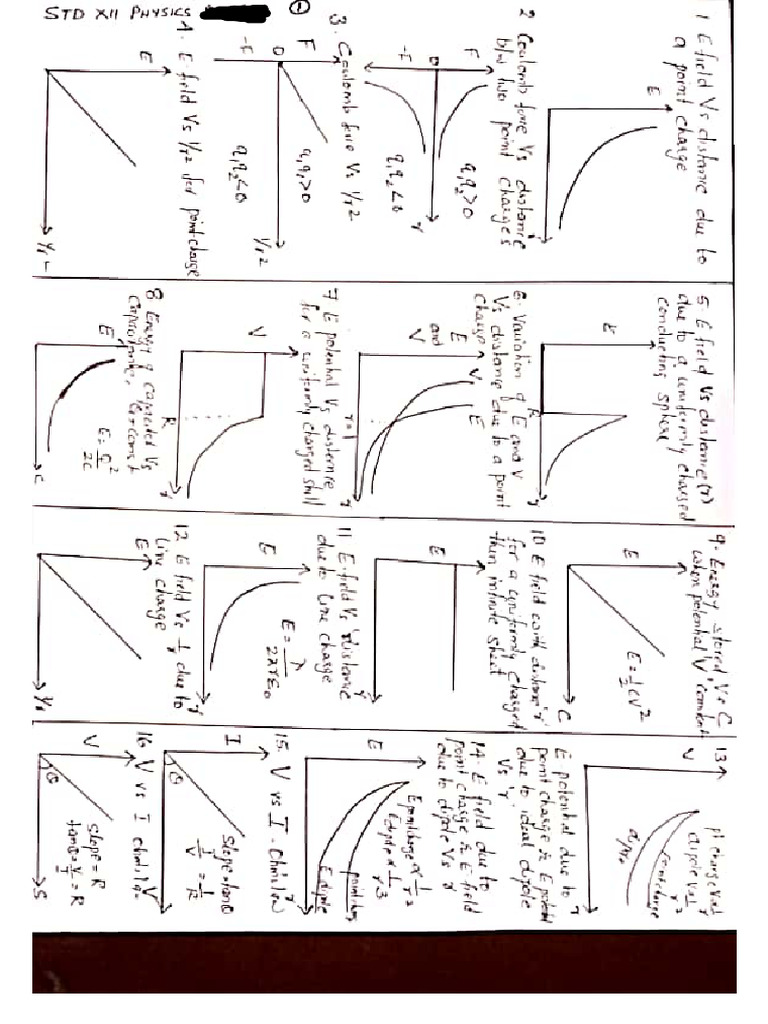 STD XII PHYSICS
1 E field Vs distance due to
a point charge
E
2 Coulomb force Vs distance
b/w two point charges
F
O
-F
q1q2>0
q1q2<0
r
3. Coulomb force Vs 1/r2
F
O
-F
q1q2>0
q1q2<0
1/r2
4. E-field Vs 1/r2 for point charge
E
5. E field Vs distance (r)
due to a uniformly charged
conducting sphere
E
R
r
6. Variation of E and V
Vs distance due to a point
charge
E
and
V
V
E
r
7 E potential Vs distance
for a uniformly charged shell
V
R
r
8 Energy of capacitor Vs
capacitance,
E = Q2/2C
E
C
9. Energy stored Vs C
when potential V constant
E
E = 1/2 CV2
C
10 E field with distance 'r'
for a uniformly charged
thin infinite sheet
E
r
11 E field Vs distance
due to line charge
E
E = λ/2πrε0
r
12 E field Vs 1/r due to
Line charge
E
1/r
13
V
pt charge
dipole V∝ 1/r2
r
E potential due to
point charge & E potential
due to ideal dipole
Vs 'r'
14. E field due to
point charge & E field
due to dipole Vs r
E
E point charge ∝ 1/r2
E dipole ∝ 1/r3
E dipole
r
15. V vs I - Ohm's law
I
θ
Slope = tanθ
I/V = 1/R
V
16 V vs I
V
θ
Slope = R
tanθ = V/I = R